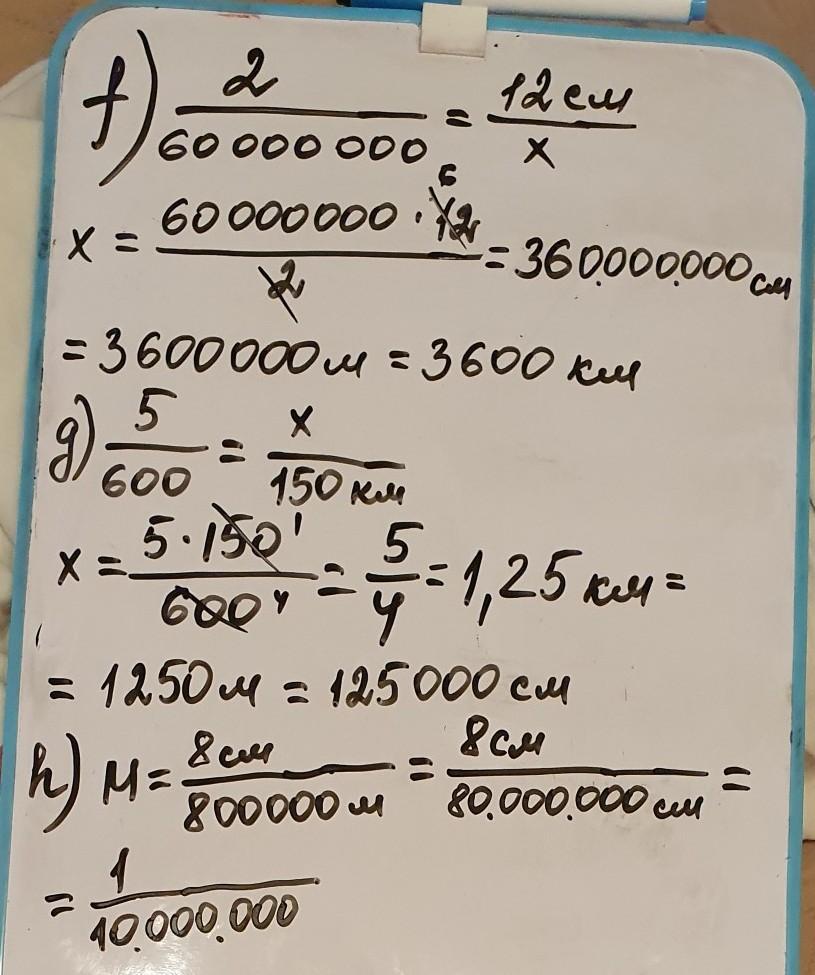 f) 2/60 000 000 = 12 см/x
x = 60000000 · 12 6/2 = 360.000.000 см
= 3600000 м = 3600 км
g) 5/600 = x/150 км
x = 5 · 150 1/600 4 = 5/4 = 1,25 км =
= 1250 м = 125000 см
h) М = 8 см/800000 м = 8 см/80.000.000 см =
= 1/10.000.000